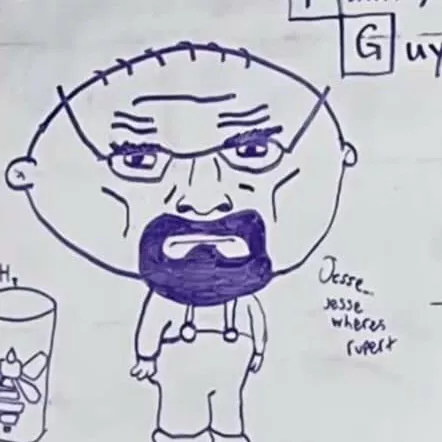 G uy
H,
Jesse...
jesse
wheres
rupert